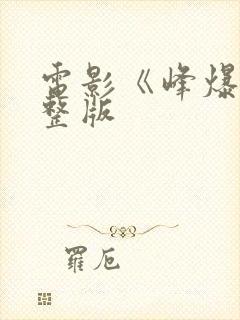 電影《峰爆
整版
羅卮